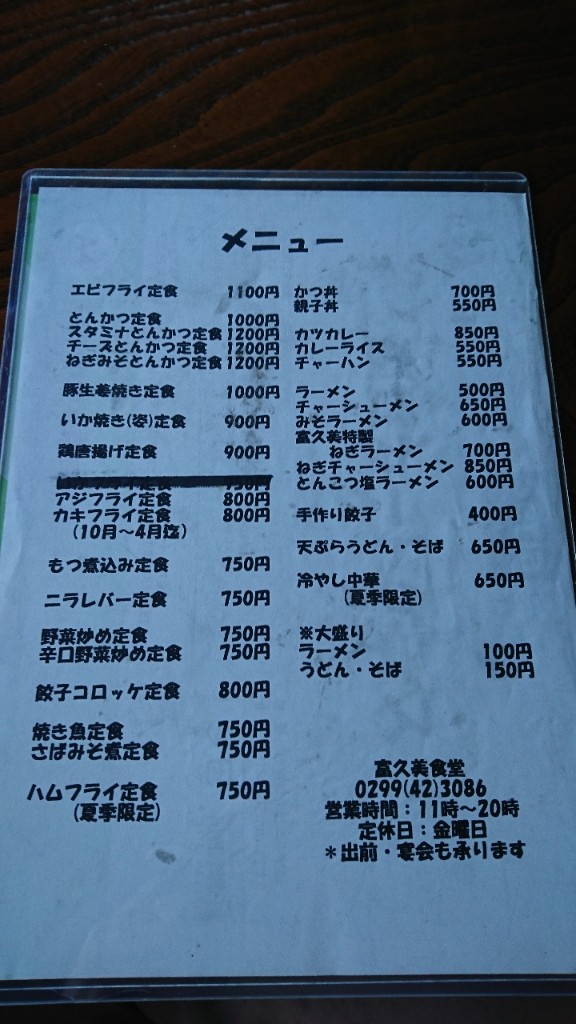 メニュー
エビフライ定食 1100円
とんかつ定食 1000円
スタミナとんかつ定食 1200円
チーズとんかつ定食 1200円
ねぎみそとんかつ定食 1200円
豚生姜焼き定食 1000円
いか焼き(姿)定食 900円
鶏唐揚げ定食 900円
アジフライ定食 800円
カキフライ定食 800円
(10月〜4月迄)
もつ煮込み定食 750円
ニラレバー定食 750円
野菜炒め定食 750円
辛口野菜炒め定食 750円
餃子コロッケ定食 800円
焼き魚定食 750円
さばみそ煮定食 750円
ハムフライ定食 750円
(夏季限定)
かつ丼 700円
親子丼 550円
カツカレー 850円
カレーライス 550円
チャーハン 550円
ラーメン 500円
チャーシューメン 650円
みそラーメン 600円
富久美特製
ねぎラーメン 700円
ねぎチャーシューメン 850円
とんこつ塩ラーメン 600円
手作り餃子 400円
天ぷらうどん・そば 650円
冷やし中華 650円
(夏季限定)
※大盛り
ラーメン 100円
うどん・そば 150円
富久美食堂
0299(42)3086
営業時間：11時〜20時
定休日：金曜日
＊出前・宴会も承ります